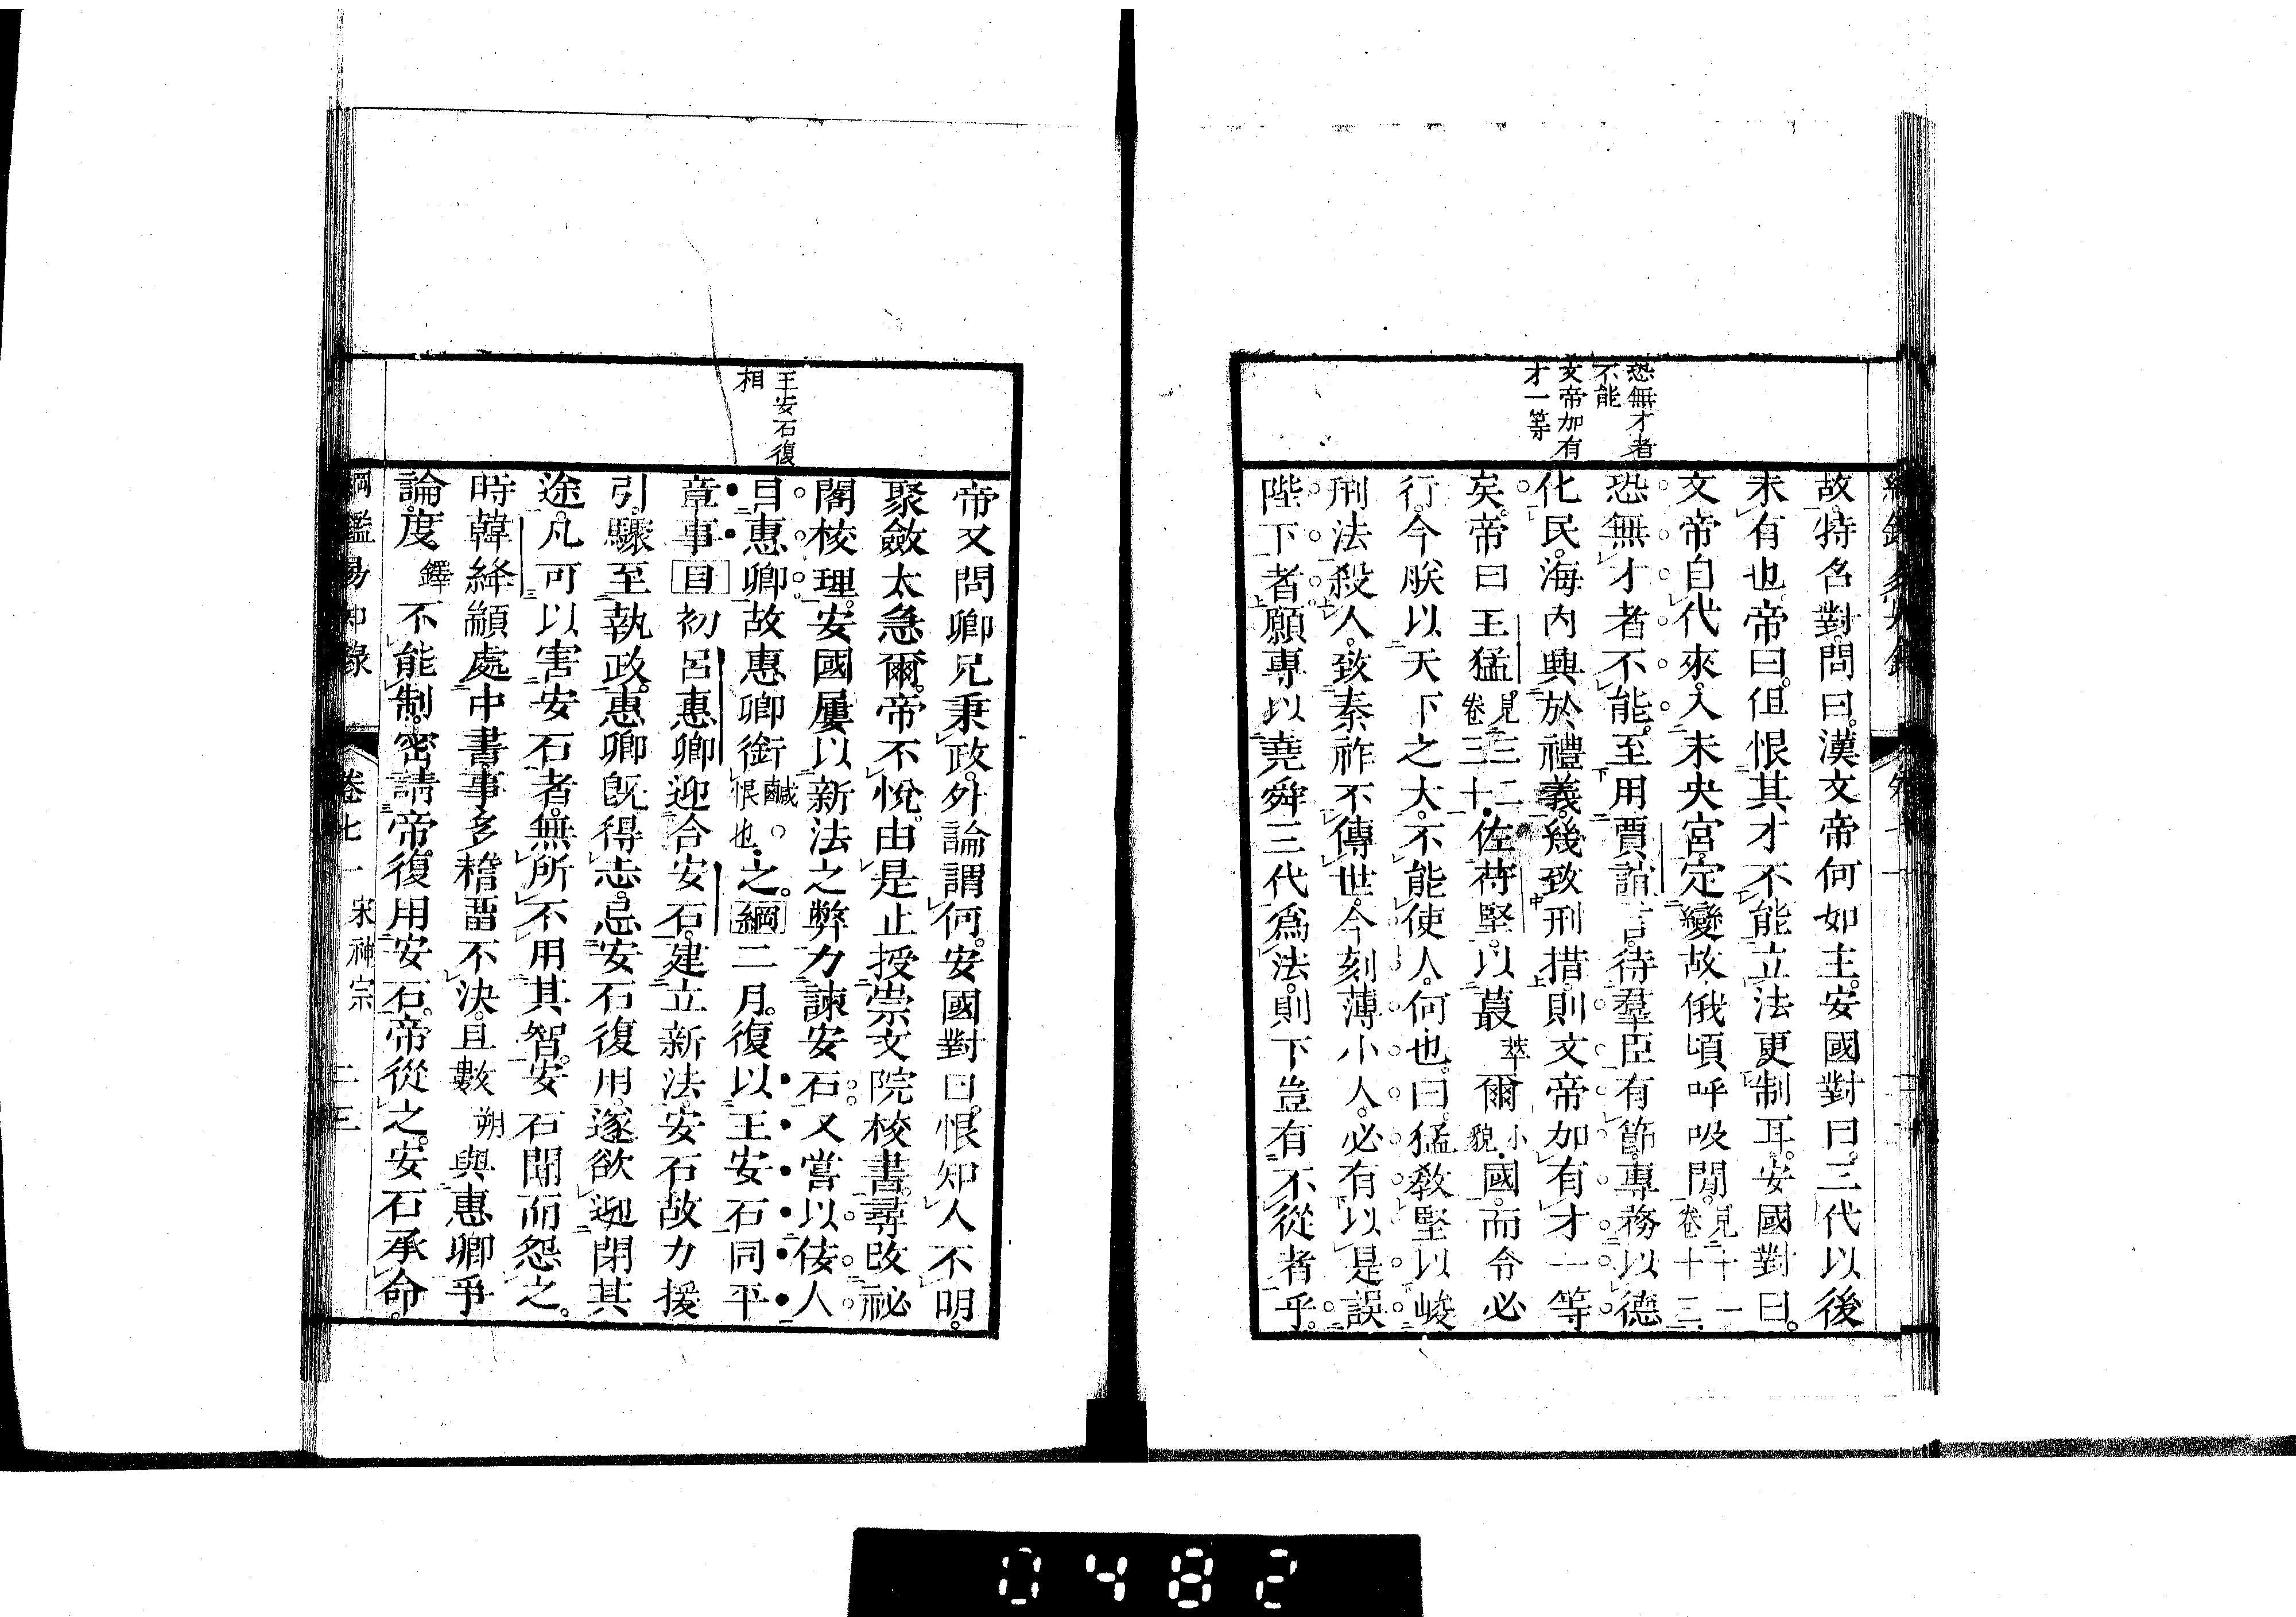 恐無才者
不能
文帝加有
才一等
故。特名對。問曰。漢文帝何如主。安國對曰。三代以後
未有也。帝曰。但恨其才不能立法更制耳。安國對曰。
文帝自代來。入未央宮。定變故俄頃呼吸閒。見二十一卷十三。
恐無才者不能。至用賈誼言。待羣臣有節。專務以德
化民。海內興於禮義。幾致刑措。則文帝加有才一等
矣。帝曰王猛。見三二卷三十。佐苻堅。以蕞萃爾小貌。國。而令必
行。今朕以天下之大。不能使人。何也。曰。猛敎堅以峻
刑法殺人。致秦祚不傳世。今刻薄小人。必有以是誤
陛下者。願專以堯舜三代爲法。則下豈有不從者乎。
王安石復
相
帝又問卿兄秉政。外論謂何。安國對曰。恨知人不明。
聚斂太急爾。帝不悅。由是止授崇文院校書。尋改祕
閣校理。安國屢以新法之弊力諫安石。又嘗以佞人
目惠卿。故惠卿銜鹹。恨也。之。綱二月。復以王安石同平
章事目初呂惠卿迎合安石。建立新法。安石故力援
引。驟至執政。惠卿旣得志。忌安石復用。遂欲逊閉其
途。凡可以害安石者。無所不用其智。安石聞而怨之。
時韓絳顓處中書。事多稽畱不決。且數朔與惠卿爭
論。度鐸不能制。密請帝。復用安石。帝從之。安石承命。
綱鑑易知錄 卷七一 宋神宗 二三